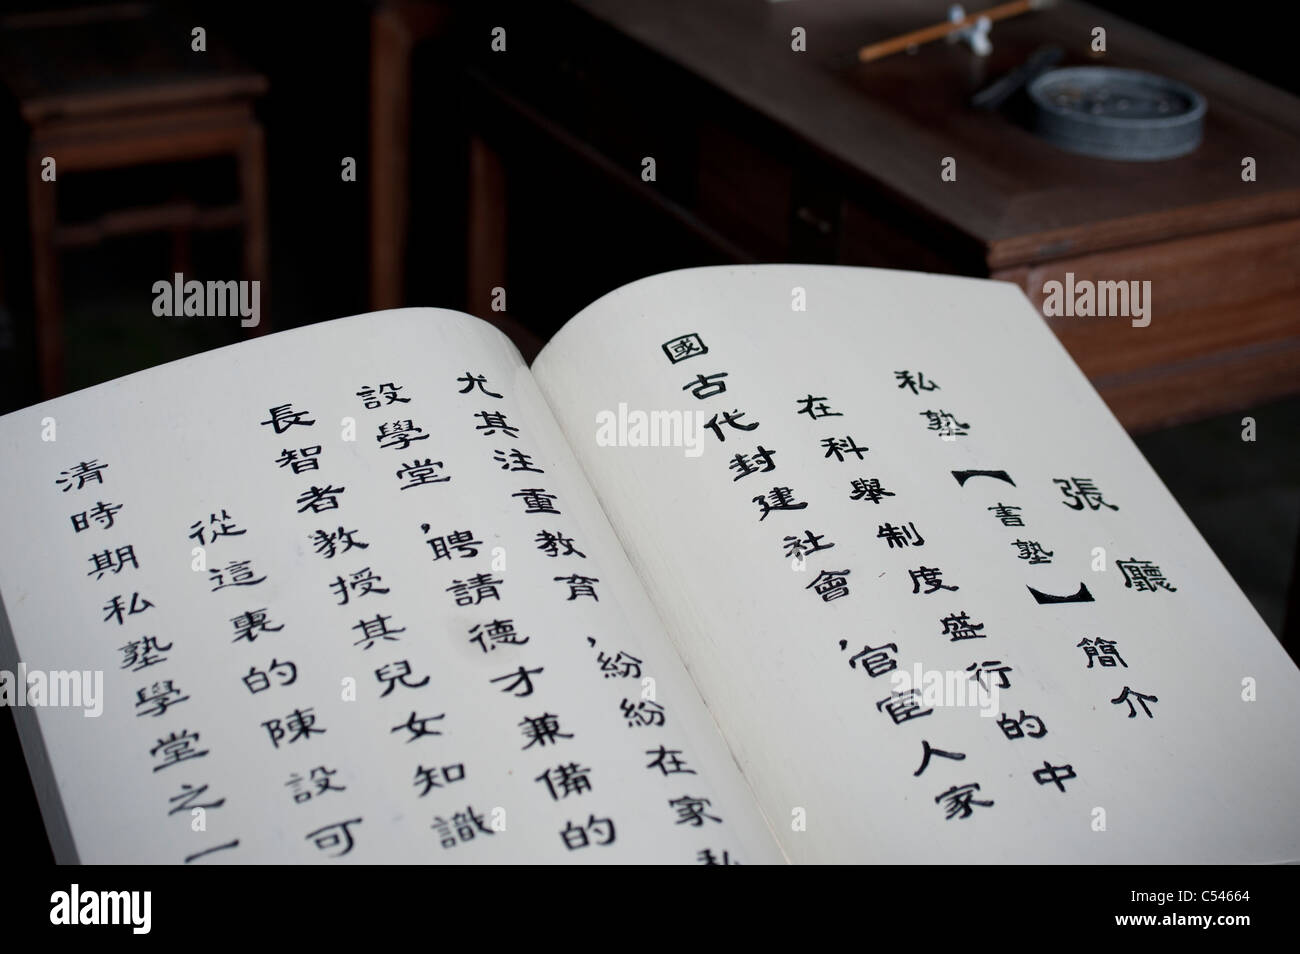 張廳
私塾【書塾】簡介
在科舉制度盛行的中
國古代封建社會,官宦人家
尤其注重教育,紛紛在家私
設學堂,聘請德才兼備的
長智者教授其兒女知識
從這裏的陳設可
清時期私塾學堂之一
alamy
Image ID: C54664
www.alamy.com